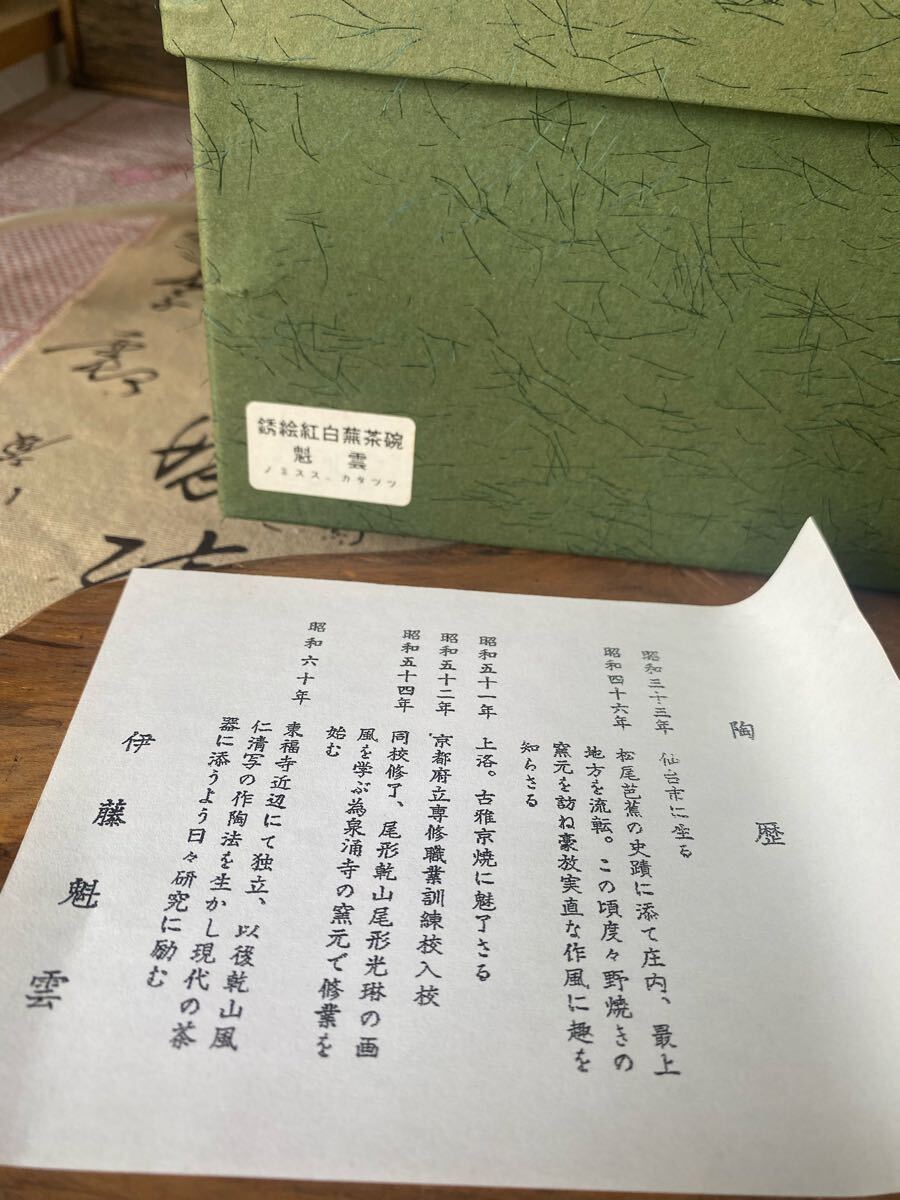 銹絵紅白蕪茶碗
魁雲
ノミスス-カタツツ
陶歴
昭和三十三年 仙台市に産る
昭和四十六年 松尾芭蕉の史蹟に添て庄内、最上
地方を流転。この頃度々野焼きの
窯元を訪ね豪放実直な作風に趣を
知らさる
昭和五十一年 上洛。古雅京焼に魅了さる
昭和五十二年 京都府立専修職業訓練校入校
昭和五十四年 同校修了、尾形乾山尾形光琳の画
風を学ぶ為泉涌寺の窯元で修業を
始む
昭和六十年 東福寺近辺にて独立、以後乾山風
仁清写の作陶法を生かし現代の茶
器に添うよう日々研究に励む
伊藤魁雲